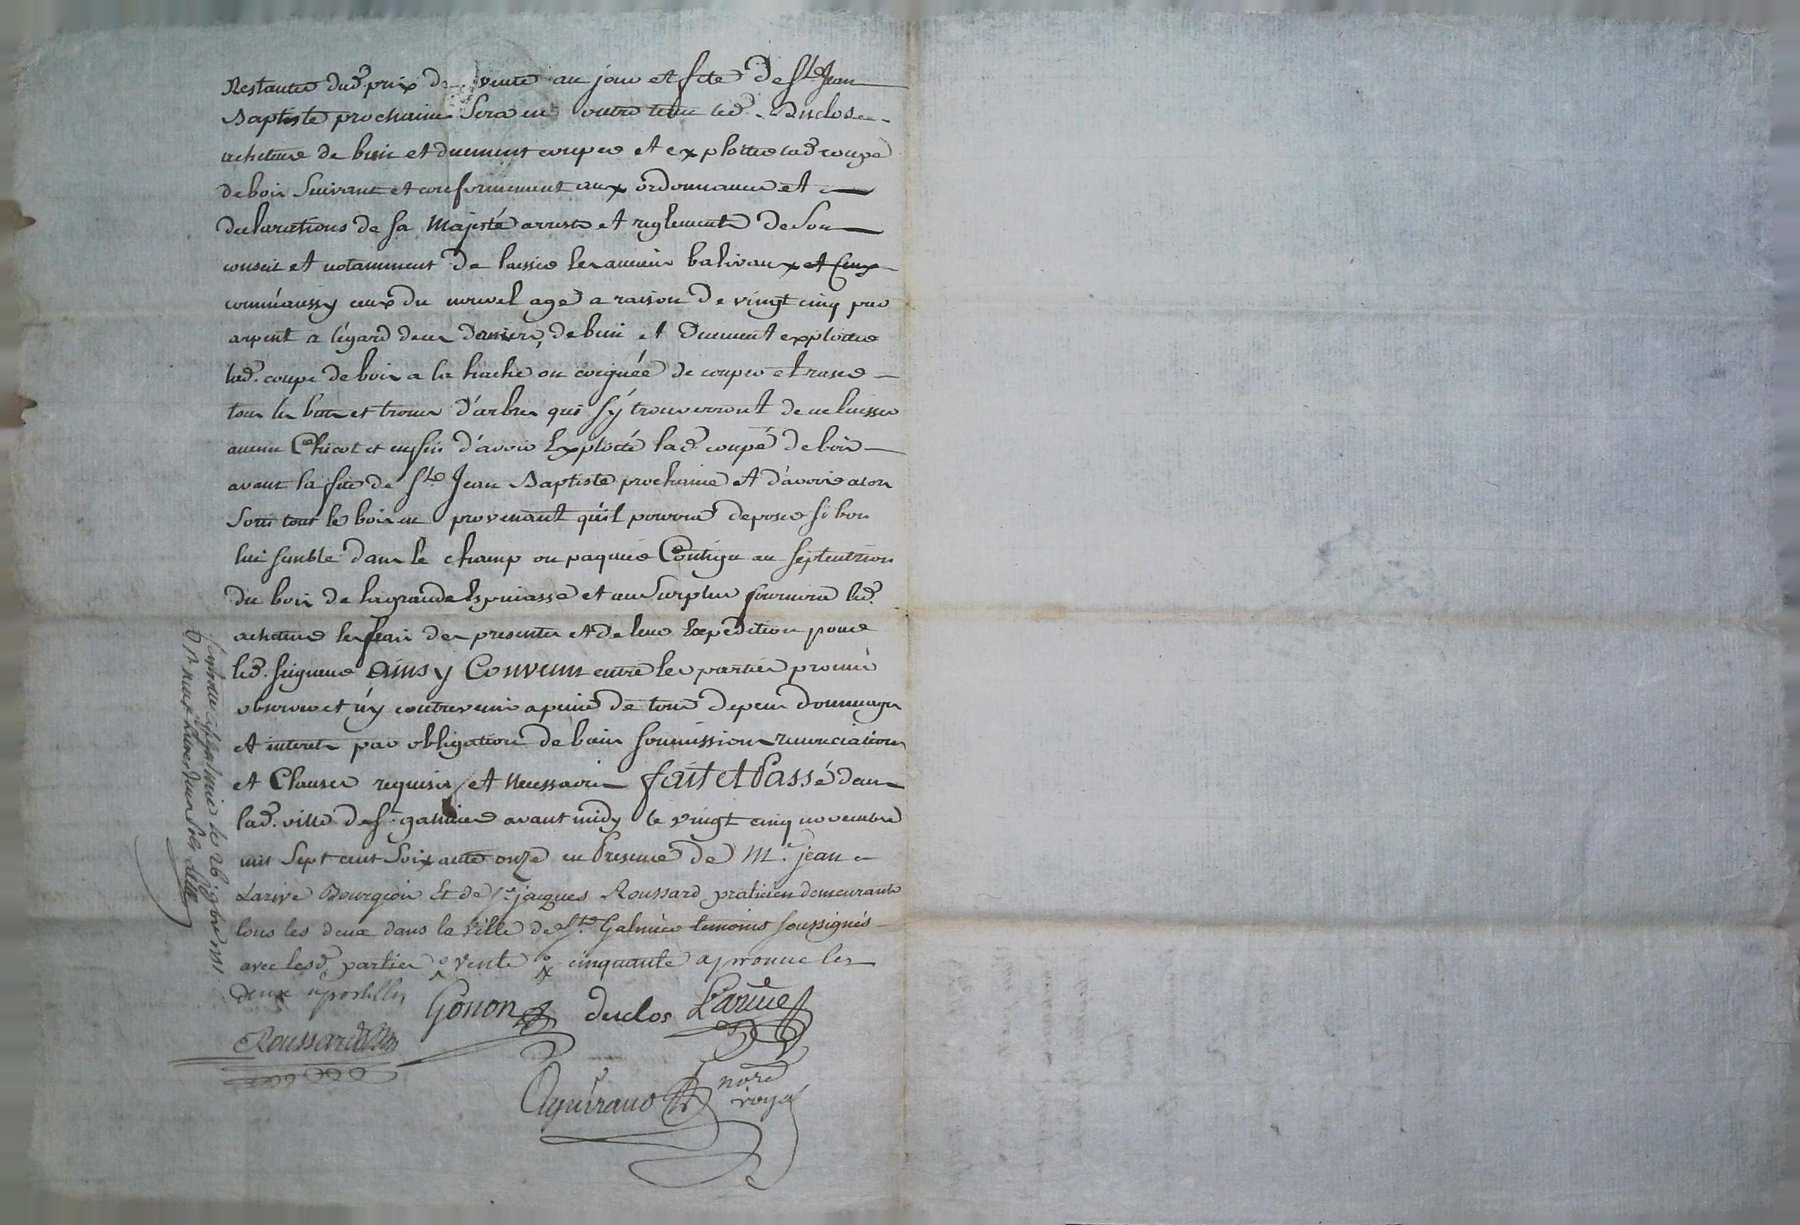 Restante dud. prix de vente au jour et fete de St. Jean
Baptiste prochaine sera en outre tenu led. Duclos
acheteur de bien et duement couper et exploiter lad. coupe
de bois suivant et conformement aux ordonnances et
declarations de sa Majesté arrests et reglements de son
conseil et notamment de laisser les anciens balivaux et ceux
comme aussy ceux du nouvel age a raison de vingt cinq par
arpent a l'égard de ces derniers, de bien et duement exploiter
lad. coupe de bois a la hache ou coignée de couper et raser
tous les bois et troncs d'arbres qui s'y trouverront de ne laisser
aucun Chicot et enfin d'avoir Exploité lad. coupe de bois
avant la fete de St. Jean Baptiste prochaine et d'avoir alors
sorti tout le bois en provenant qu'il pourra deposer si bon
lui semble dans le champ ou paquier Contigu au septentrion
du bois de la grande Espinasse et au surplus fournira led.
acheteur les frais des presentes et de leur Expedition pour
led. seigneur Ainsy Convenu entre les parties promis
observer et n'y contrevenir a peine de tous depens dommages
et interets par obligation de biens soumissions renonciations
et Clauses requises et necessaires fait et Passé dans
lad. ville de St. galmier avant midy le vingt cinq novembre
mil sept cent soixante onze en Presence de Me. jean
Larive Bourgeois Et de sr. jacques Roussard praticien demeurants
tous les deux dans la ville de St. Galmier temoins soussignés
avec lesd. parties vente cinquante aprouve les
deux apostilles
Gonon duclos Larive
Roussard
nore. royal
Controllé a St galmier le 26 9bre 1771